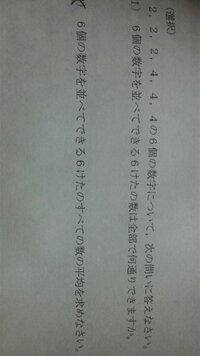 (選択)
2，2，2，4，4，4の6個の数字について，次の問いに答えなさい。
1) 6個の数字を並べてできる6けたの数は全部で何通りできますか。
6個の数字を並べてできる6けたのすべての数の平均を求めなさい。